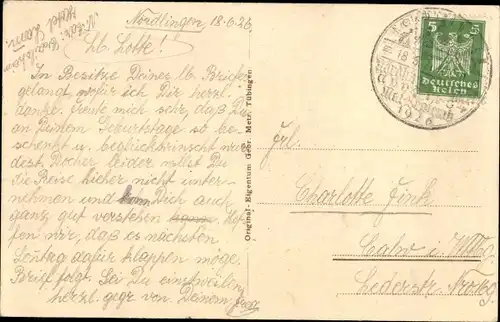 Nördlingen, 18.6.26
Lb. Lotte!
Im Besitze Deines lb. Briefes
gelangt, wofür ich Dir herzl.
danke. Freute mich sehr, daß Du
an Deinem Geburtstage so be-
schenkt u. beglückwünscht wur-
dest. Aber leider willst Du
die Reise hieher nicht unter-
nehmen und kann Dich auch
ganz gut verstehen. Hof-
fen wir, daß es nächsten
Sonntag dafür klappen möge.
Brief folgt. Sei Du einstweilen
herzl. gegr. von Deinem
Original-Eigentum Geor Metr. Tübingen
5 5
Deutsches
Reich
1926
Frl.
Charlotte Fink
Calw i. Wttbg.
Lederstr.